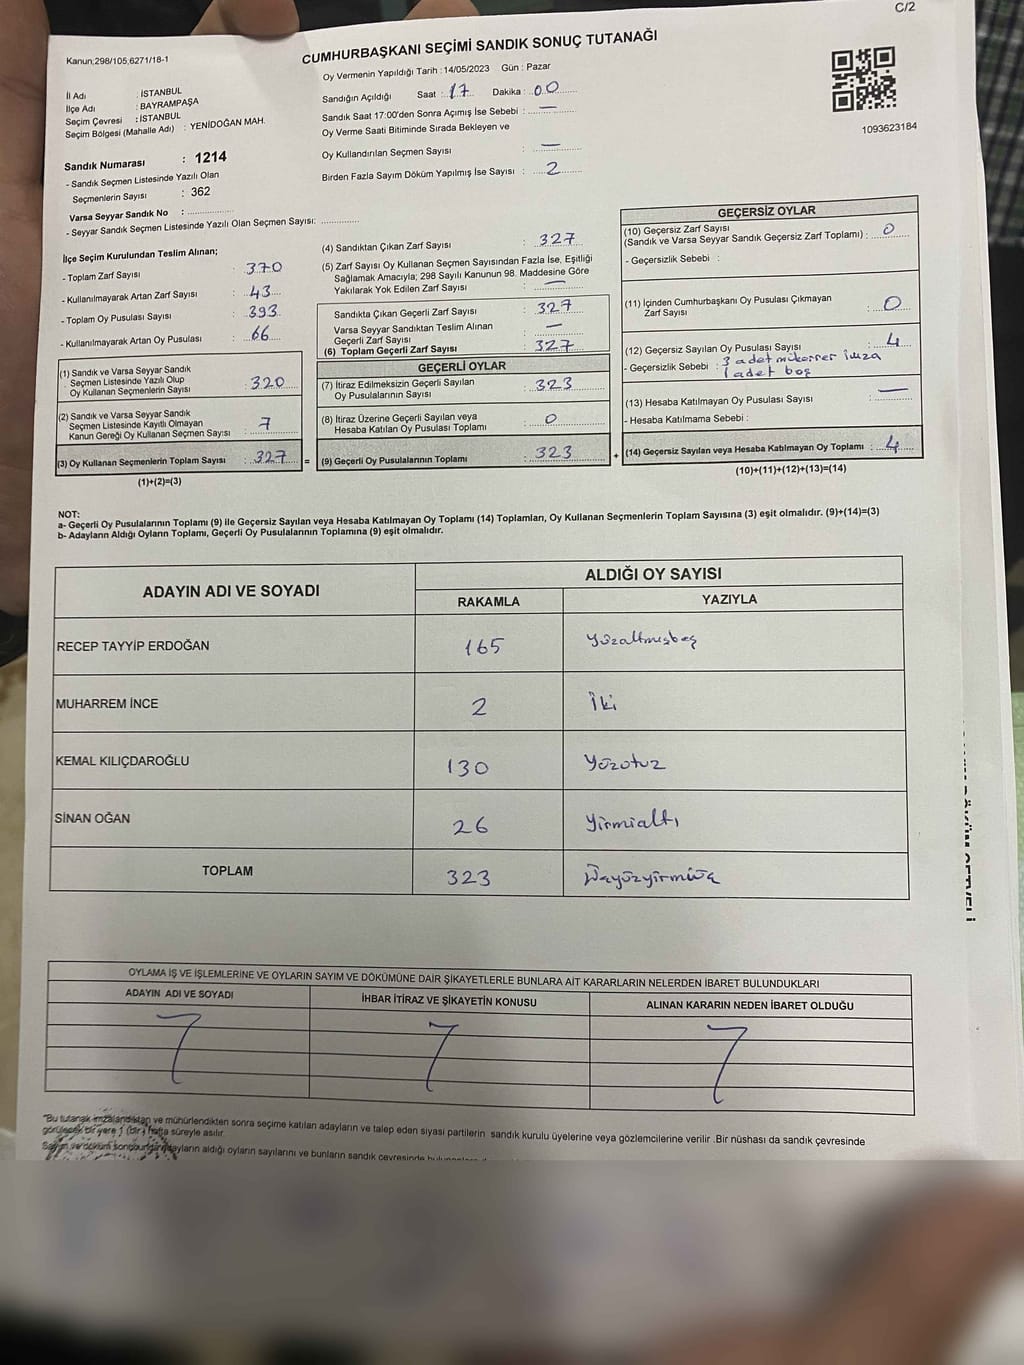 C/2
Kanun,298/105,6271/18-1
CUMHURBAŞKANI SEÇİMİ SANDIK SONUÇ TUTANAĞI
Oy Vermenin Yapıldığı Tarih : 14/05/2023 Gün : Pazar
İl Adı : İSTANBUL
İlçe Adı : BAYRAMPAŞA
Seçim Çevresi : İSTANBUL
Seçim Bölgesi (Mahalle Adı) : YENİDOĞAN MAH.
Sandık Numarası : 1214
- Sandık Seçmen Listesinde Yazılı Olan
Seçmenlerin Sayısı : 362
Varsa Seyyar Sandık No : ................
- Seyyar Sandık Seçmen Listesinde Yazılı Olan Seçmen Sayısı: ............
Sandığın Açıldığı Saat : 17 Dakika : 00
Sandık Saat 17:00'den Sonra Açımış İse Sebebi : —
Oy Verme Saati Bitiminde Sırada Bekleyen ve
Oy Kullandırılan Seçmen Sayısı : —
Birden Fazla Sayım Döküm Yapılmış İse Sayısı : 2
1093623184
İlçe Seçim Kurulundan Teslim Alınan;
- Toplam Zarf Sayısı : 370
- Kullanılmayarak Artan Zarf Sayısı : 43
- Toplam Oy Pusulası Sayısı : 393
- Kullanılmayarak Artan Oy Pusulası : 66
(1) Sandık ve Varsa Seyyar Sandık
Seçmen Listesinde Yazılı Olup
Oy Kullanan Seçmenlerin Sayısı : 320
(2) Sandık ve Varsa Seyyar Sandık
Seçmen Listesinde Kayıtlı Olmayan
Kanun Gereği Oy Kullanan Seçmen Sayısı : 7
(3) Oy Kullanan Seçmenlerin Toplam Sayısı : 327 =
(1)+(2)=(3)
(4) Sandıktan Çıkan Zarf Sayısı : 327
(5) Zarf Sayısı Oy Kullanan Seçmen Sayısından Fazla İse, Eşitliği
Sağlamak Amacıyla; 298 Sayılı Kanunun 98. Maddesine Göre
Yakılarak Yok Edilen Zarf Sayısı : —
Sandıkta Çıkan Geçerli Zarf Sayısı : 327
Varsa Seyyar Sandıktan Teslim Alınan
Geçerli Zarf Sayısı : —
(6) Toplam Geçerli Zarf Sayısı : 327
GEÇERLİ OYLAR
(7) İtiraz Edilmeksizin Geçerli Sayılan
Oy Pusulalarının Sayısı : 323
(8) İtiraz Üzerine Geçerli Sayılan veya
Hesaba Katılan Oy Pusulası Toplamı : 0
(9) Geçerli Oy Pusulalarının Toplamı : 323 +
GEÇERSİZ OYLAR
(10) Geçersiz Zarf Sayısı
(Sandık ve Varsa Seyyar Sandık Geçersiz Zarf Toplamı) : 0
- Geçersizlik Sebebi :
(11) İçinden Cumhurbaşkanı Oy Pusulası Çıkmayan
Zarf Sayısı : 0
(12) Geçersiz Sayılan Oy Pusulası Sayısı : 4
- Geçersizlik Sebebi : 3 adet mükerrer imza
1 adet boş
(13) Hesaba Katılmayan Oy Pusulası Sayısı : —
- Hesaba Katılmama Sebebi :
(14) Geçersiz Sayılan veya Hesaba Katılmayan Oy Toplamı : 4
(10)+(11)+(12)+(13)=(14)
NOT:
a- Geçerli Oy Pusulalarının Toplamı (9) ile Geçersiz Sayılan veya Hesaba Katılmayan Oy Toplamı (14) Toplamları, Oy Kullanan Seçmenlerin Toplam Sayısına (3) eşit olmalıdır. (9)+(14)=(3)
b- Adayların Aldığı Oyların Toplamı, Geçerli Oy Pusulalarının Toplamına (9) eşit olmalıdır.
ADAYIN ADI VE SOYADI ALDIĞI OY SAYISI
RAKAMLA YAZIYLA
RECEP TAYYİP ERDOĞAN 165 Yüzaltmışbeş
MUHARREM İNCE 2 İki
KEMAL KILIÇDAROĞLU 130 Yüzotuz
SİNAN OĞAN 26 Yirmialtı
TOPLAM 323 Üçyüzyirmiüç
OYLAMA İŞ VE İŞLEMLERİNE VE OYLARIN SAYIM VE DÖKÜMÜNE DAİR ŞİKAYETLERLE BUNLARA AİT KARARLARIN NELERDEN İBARET BULUNDUKLARI
ADAYIN ADI VE SOYADI İHBAR İTİRAZ VE ŞİKAYETİN KONUSU ALINAN KARARIN NEDEN İBARET OLDUĞU
"Bu tutanak imzalandıktan ve mühürlendikten sonra seçime katılan adayların ve talep eden siyasi partilerin sandık kurulu üyelerine veya gözlemcilerine verilir .Bir nüshası da sandık çevresinde
görülecek bir yere 1 (bir) hafta süreyle asılır.
adayların aldığı oyların sayılarını ve bunların sandık çevresinde